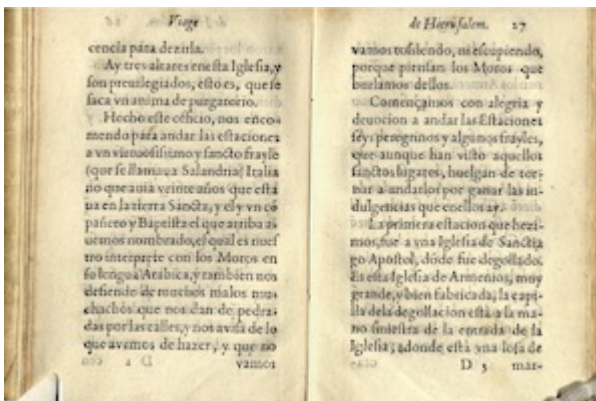 Viage
cencia para dezirla.
Ay tres altares en esta Iglesia, y
son preuilegiados, esto es, que se
saca vn anima de purgatorio.
Hecho este oficio, nos enco-
mendo para andar las estaciones
a vn virtuosissimo y sancto frayle
(que se llamaua Salandria) Italia
no que auia veinte años que esta
ua en la tierra Sancta, y el y vn cō
pañero y Baptista el que arriba a-
uemos nombrado, el qual es nues
tro interprete con los Moros en
su lengua Arabica, y tambien nos
defiende de muchos malos mu-
chachos que nos dan de pedra-
das por las calles, y nos auisa de lo
que auemos de hazer, y que no
D 2
vamos
de Hierusalem. 27
vamos tosiendo, ni escupiendo,
porque piensan los Moros que
burlamos dellos.
Començamos con alegria y
deuocion a andar las Estaciones
seys peregrinos y algunos frayles,
que aunque han visto aquellos
sanctos lugares, huelgan de tor-
nar a andarlos por ganar las in-
dulgencias que en ellos ay.
La primera estacion que hezi-
mos, fue a vna Iglesia de Sanctia
go Apostol, dōde fue degollado.
Es esta Iglesia de Armenios, muy
grande, y bien fabricada, la capi-
lla de la degollacion està a la ma-
no siniestra de la entrada de la
Iglesia, adonde està vna losa de
D 3
mar-